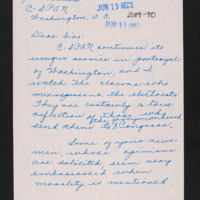 JUN 15 RECD
C-SPAN
Washington, D.C.
JUN 15 RECD
Dear Sirs:
C-SPAN continues its
unique service in portrayal
of Washington, and I
watch the clowns who
misrepresent the electorate.
They are certainly a true
reflection of those who
send them to Congress.
Some of your news-
men, whose opinions
are solicited seem very
embarrassed when
morality is mentioned.